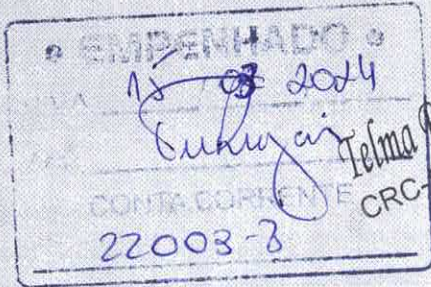 EMPENHADO
15 03 2024
Telma
CRC-
CONTA CORRENTE
22003-3